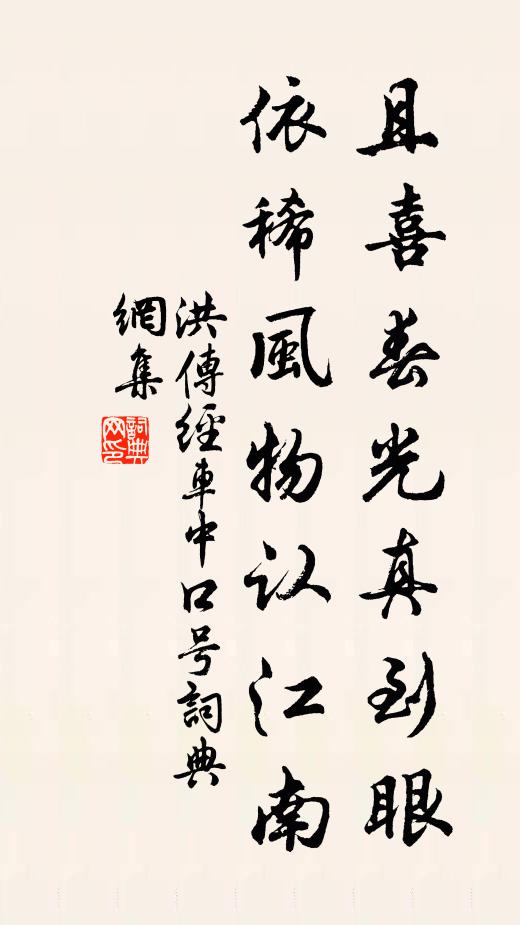 且喜春光真到眼
依稀風物认江南
洪傳經車中口号詞典
網集
詞典
网印